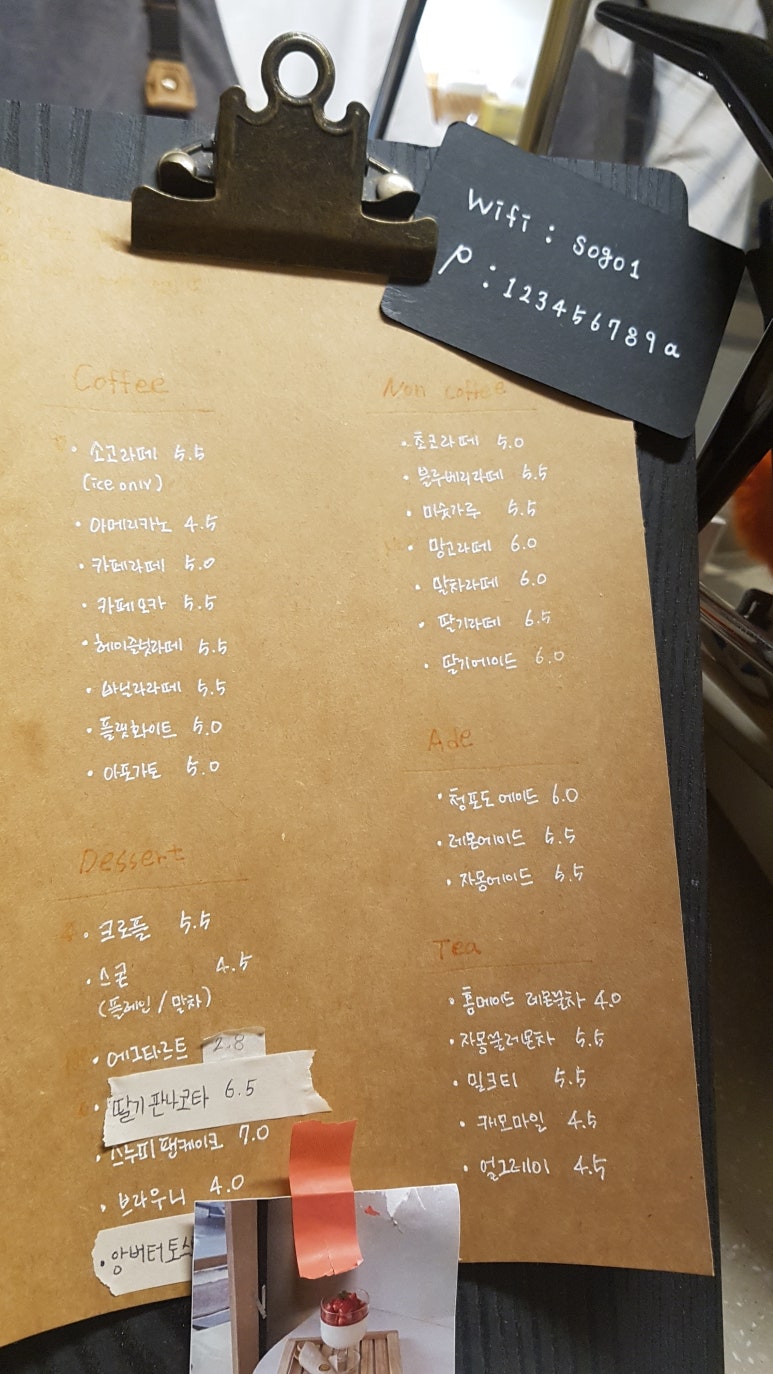 Wifi : sogo1
p : 123456789a
Coffee
• 소고라떼 5.5
(ice only)
• 아메리카노 4.5
• 카페라떼 5.0
• 카페모카 5.5
• 헤이즐넛라떼 5.5
• 바닐라라떼 5.5
• 플랫화이트 5.0
• 아포가토 5.0
Dessert
• 크로플 5.5
• 스콘 4.5
(플레인 / 말차)
• 에그타르트 2.8
• 딸기 판나코타 6.5
• 스누피팬케이크 7.0
• 브라우니 4.0
• 앙버터토스
Non coffee
• 초코라떼 5.0
• 블루베리라떼 5.5
• 미숫가루 5.5
• 망고라떼 6.0
• 말차라떼 6.0
• 딸기라떼 6.5
• 딸기에이드 6.0
Ade
• 청포도 에이드 6.0
• 레몬에이드 5.5
• 자몽에이드 5.5
Tea
• 홈메이드 레몬꿀차 4.0
• 자몽꿀레몬차 5.5
• 밀크티 5.5
• 캐모마일 4.5
• 얼그레이 4.5